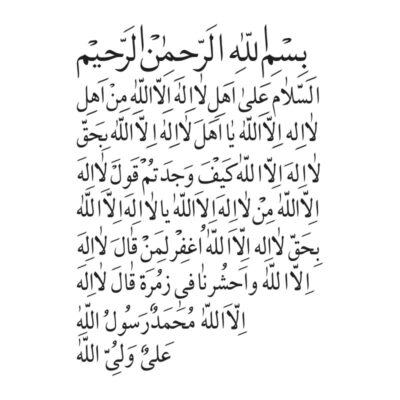 بِسْمِ اللّٰهِ الرَّحمٰنِ الرَّحيْمِ
اَلسَّلامُ عَلىٰ اَهلِ لٰا اِلهَ اِلاَّ اللّٰهُ مِنْ اَهلِ
لٰا اِلهَ اِلاَّ اللّٰهُ يا اَهْلَ لٰا اِلهَ اِلاَّ اللّٰه بِحَقّ
لٰا اِلهَ اِلاّ اللّٰهُ كَيْفَ وَجَدتُمْ قَولَ لٰا اِلهَ
اِلاَّ اللّٰهُ مِنْ لٰا اِلهَ اِلاَّ اللّٰهُ يا لٰا اِلهَ اِلاَّ اللّٰهُ
بِحَقّ لٰا اِله اِلاَّ اللّٰهُ اُغفِرْ لِمَنْ قالَ لٰا اِلهَ
اِلاّ اللّٰهُ واحشُرنٰا في زمُرَة قالَ لٰا اِلهَ
اِلاّ اللّٰهُ مُحَمَدٌ رَسولُ اللّٰهِ
عَليٌ وَليُّ اللّٰهُ